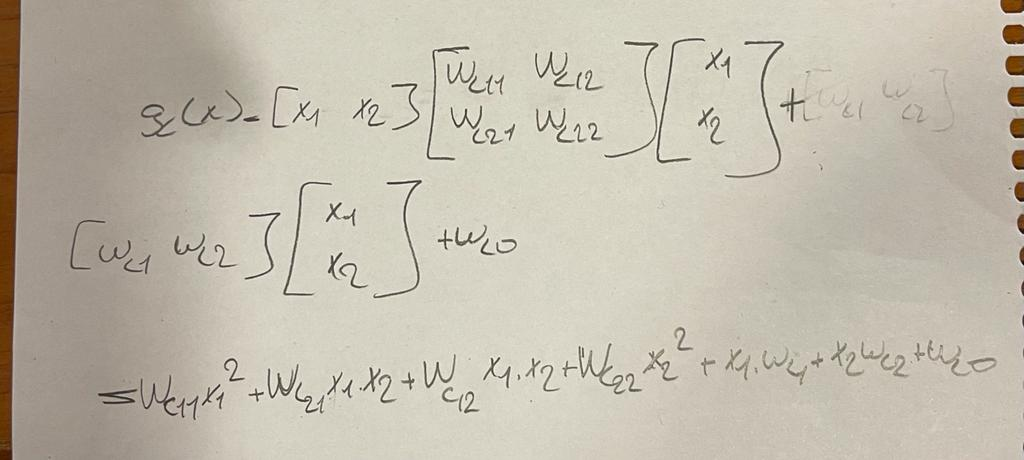 g_c(x) = [x1 x2] [W_c11 W_c12; W_c21 W_c22] [x1; x2] + [w_c1 w_c2]
[w_c1 w_c2] [x1; x2] + w_c0
= W_c11 x1^2 + W_c21 x1.x2 + W_c12 x1.x2 + W_c22 x2^2 + x1.w_c1 + x2 w_c2 + w_c0